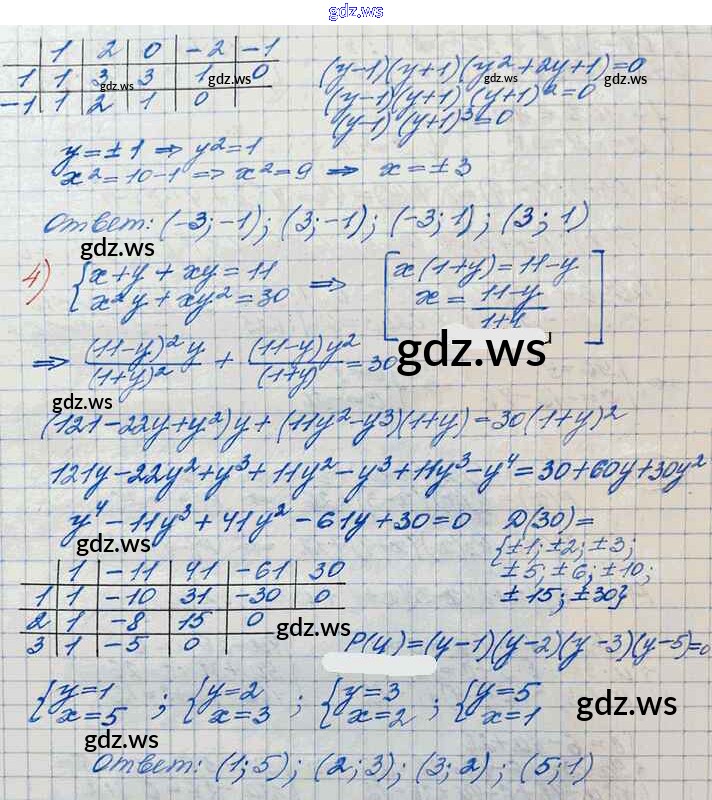 gdz.ws
1 2 0 -2 -1
1 1 3 3 1 0
-1 1 2 1 0
gdz.ws gdz.ws gdz.ws gdz.ws
(y-1)(y+1)(y²+2y+1)=0
(y-1)(y+1)(y+1)²=0
(y-1)(y+1)³=0
y=±1 ⇒ y²=1
x²=10-1 ⇒ x²=9 ⇒ x=±3
Ответ: (-3;-1); (3;-1); (-3;1); (3;1)
gdz.ws
4) {x+y+xy=11 ⇒ [x(1+y)=11-y
{x²y+xy²=30 x=(11-y)/(1+y)]
gdz.ws
⇒ (11-y)²y/(1+y)² + (11-y)y²/(1+y) = 30
gdz.ws
(121-22y+y²)y+(11y²-y3)(1+y)=30(1+y)²
121y-22y²+y³+11y²-y³+11y³-y⁴=30+60y+30y²
y⁴-11y³+41y²-61y+30=0 D(30)=
{±1; ±2; ±3;
±5; ±6; ±10;
±15; ±30}
gdz.ws
1 -11 41 -61 30
1 1 -10 31 -30 0
2 1 -8 15 0
3 1 -5 0
gdz.ws
P(y)=(y-1)(y-2)(y-3)(y-5)=0
{y=1 ; {y=2 ; {y=3 ; {y=5
{x=5 {x=3 {x=2 {x=1
gdz.ws
gdz.ws
Ответ: (1;5); (2;3); (3;2); (5;1)